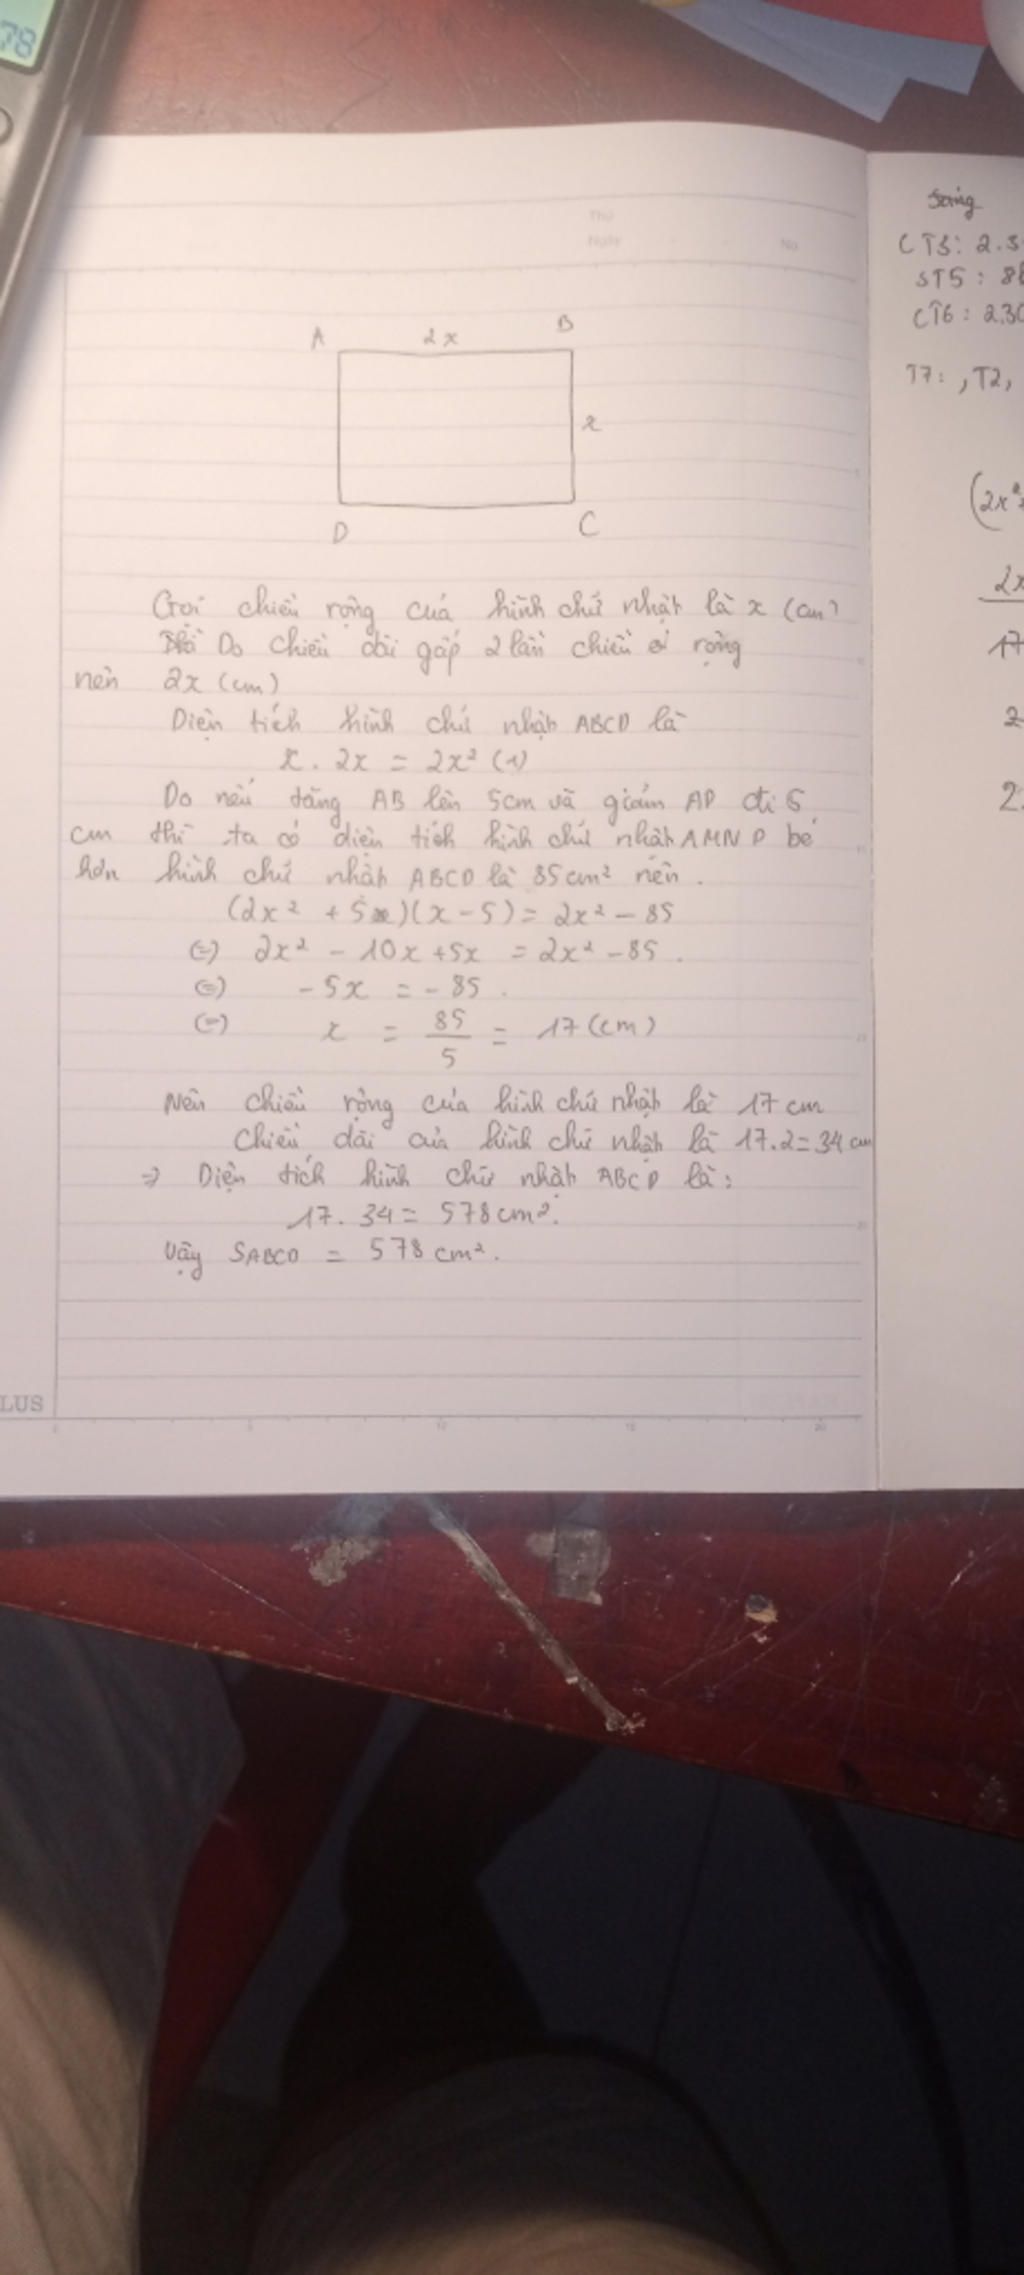 78
Thứ
Ngày
No
A 2x B
x
D C
Gọi chiều rộng của hình chữ nhật là x (cm)
Do chiều dài gấp 2 lần chiều rộng
nên 2x (cm)
Diện tích hình chữ nhật ABCD là
x . 2x = 2x² (1)
Do nếu tăng AB lên 5cm và giảm AD đi 5
cm thì ta có diện tích hình chữ nhật AMND bé
hơn hình chữ nhật ABCD là 85cm² nên.
(2x² + 5)(x - 5) = 2x² - 85
(=) 2x² - 10x + 5x = 2x² - 85.
(=) - 5x = - 85.
(=) x = 85/5 = 17 (cm)
Nên chiều rộng của hình chữ nhật là 17 cm
Chiều dài của hình chữ nhật là 17.2 = 34 cm
=> Diện tích hình chữ nhật ABCD là:
17. 34 = 578 cm².
Vậy SABCD = 578 cm².
LUS
CT3: 2.3
ST5: 8
CT6: 2.30
T7: , T2,
(2x²
2x
17
2
2